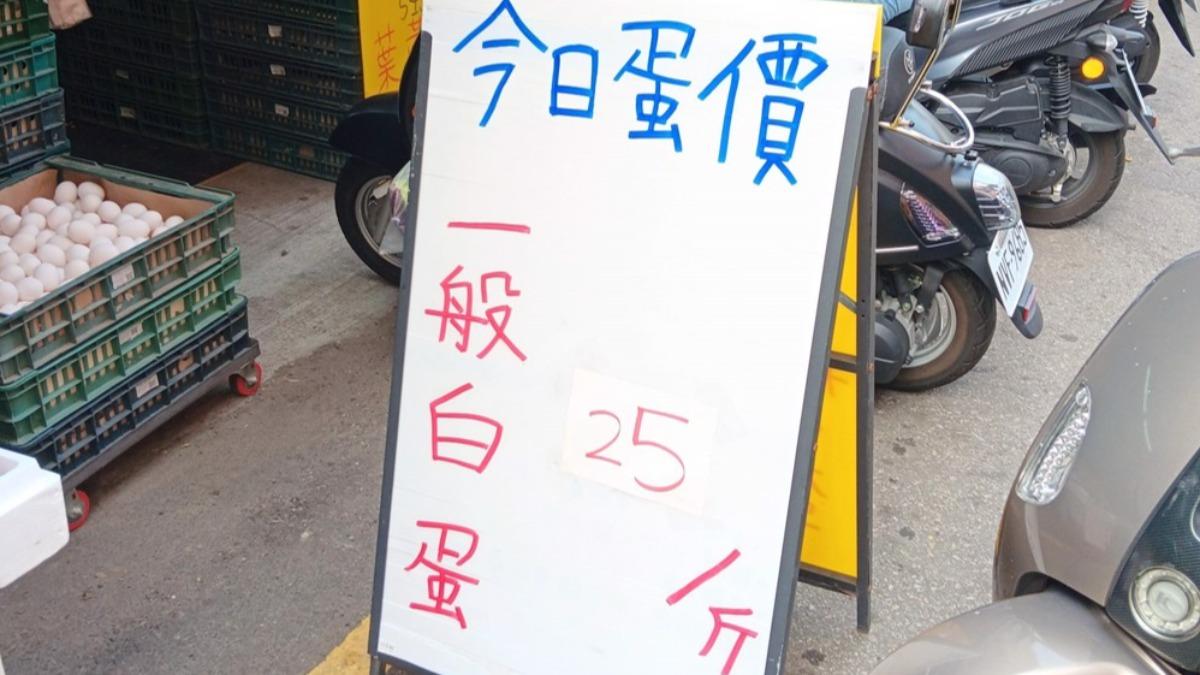 今日蛋價
一般白蛋
25
/斤
葉